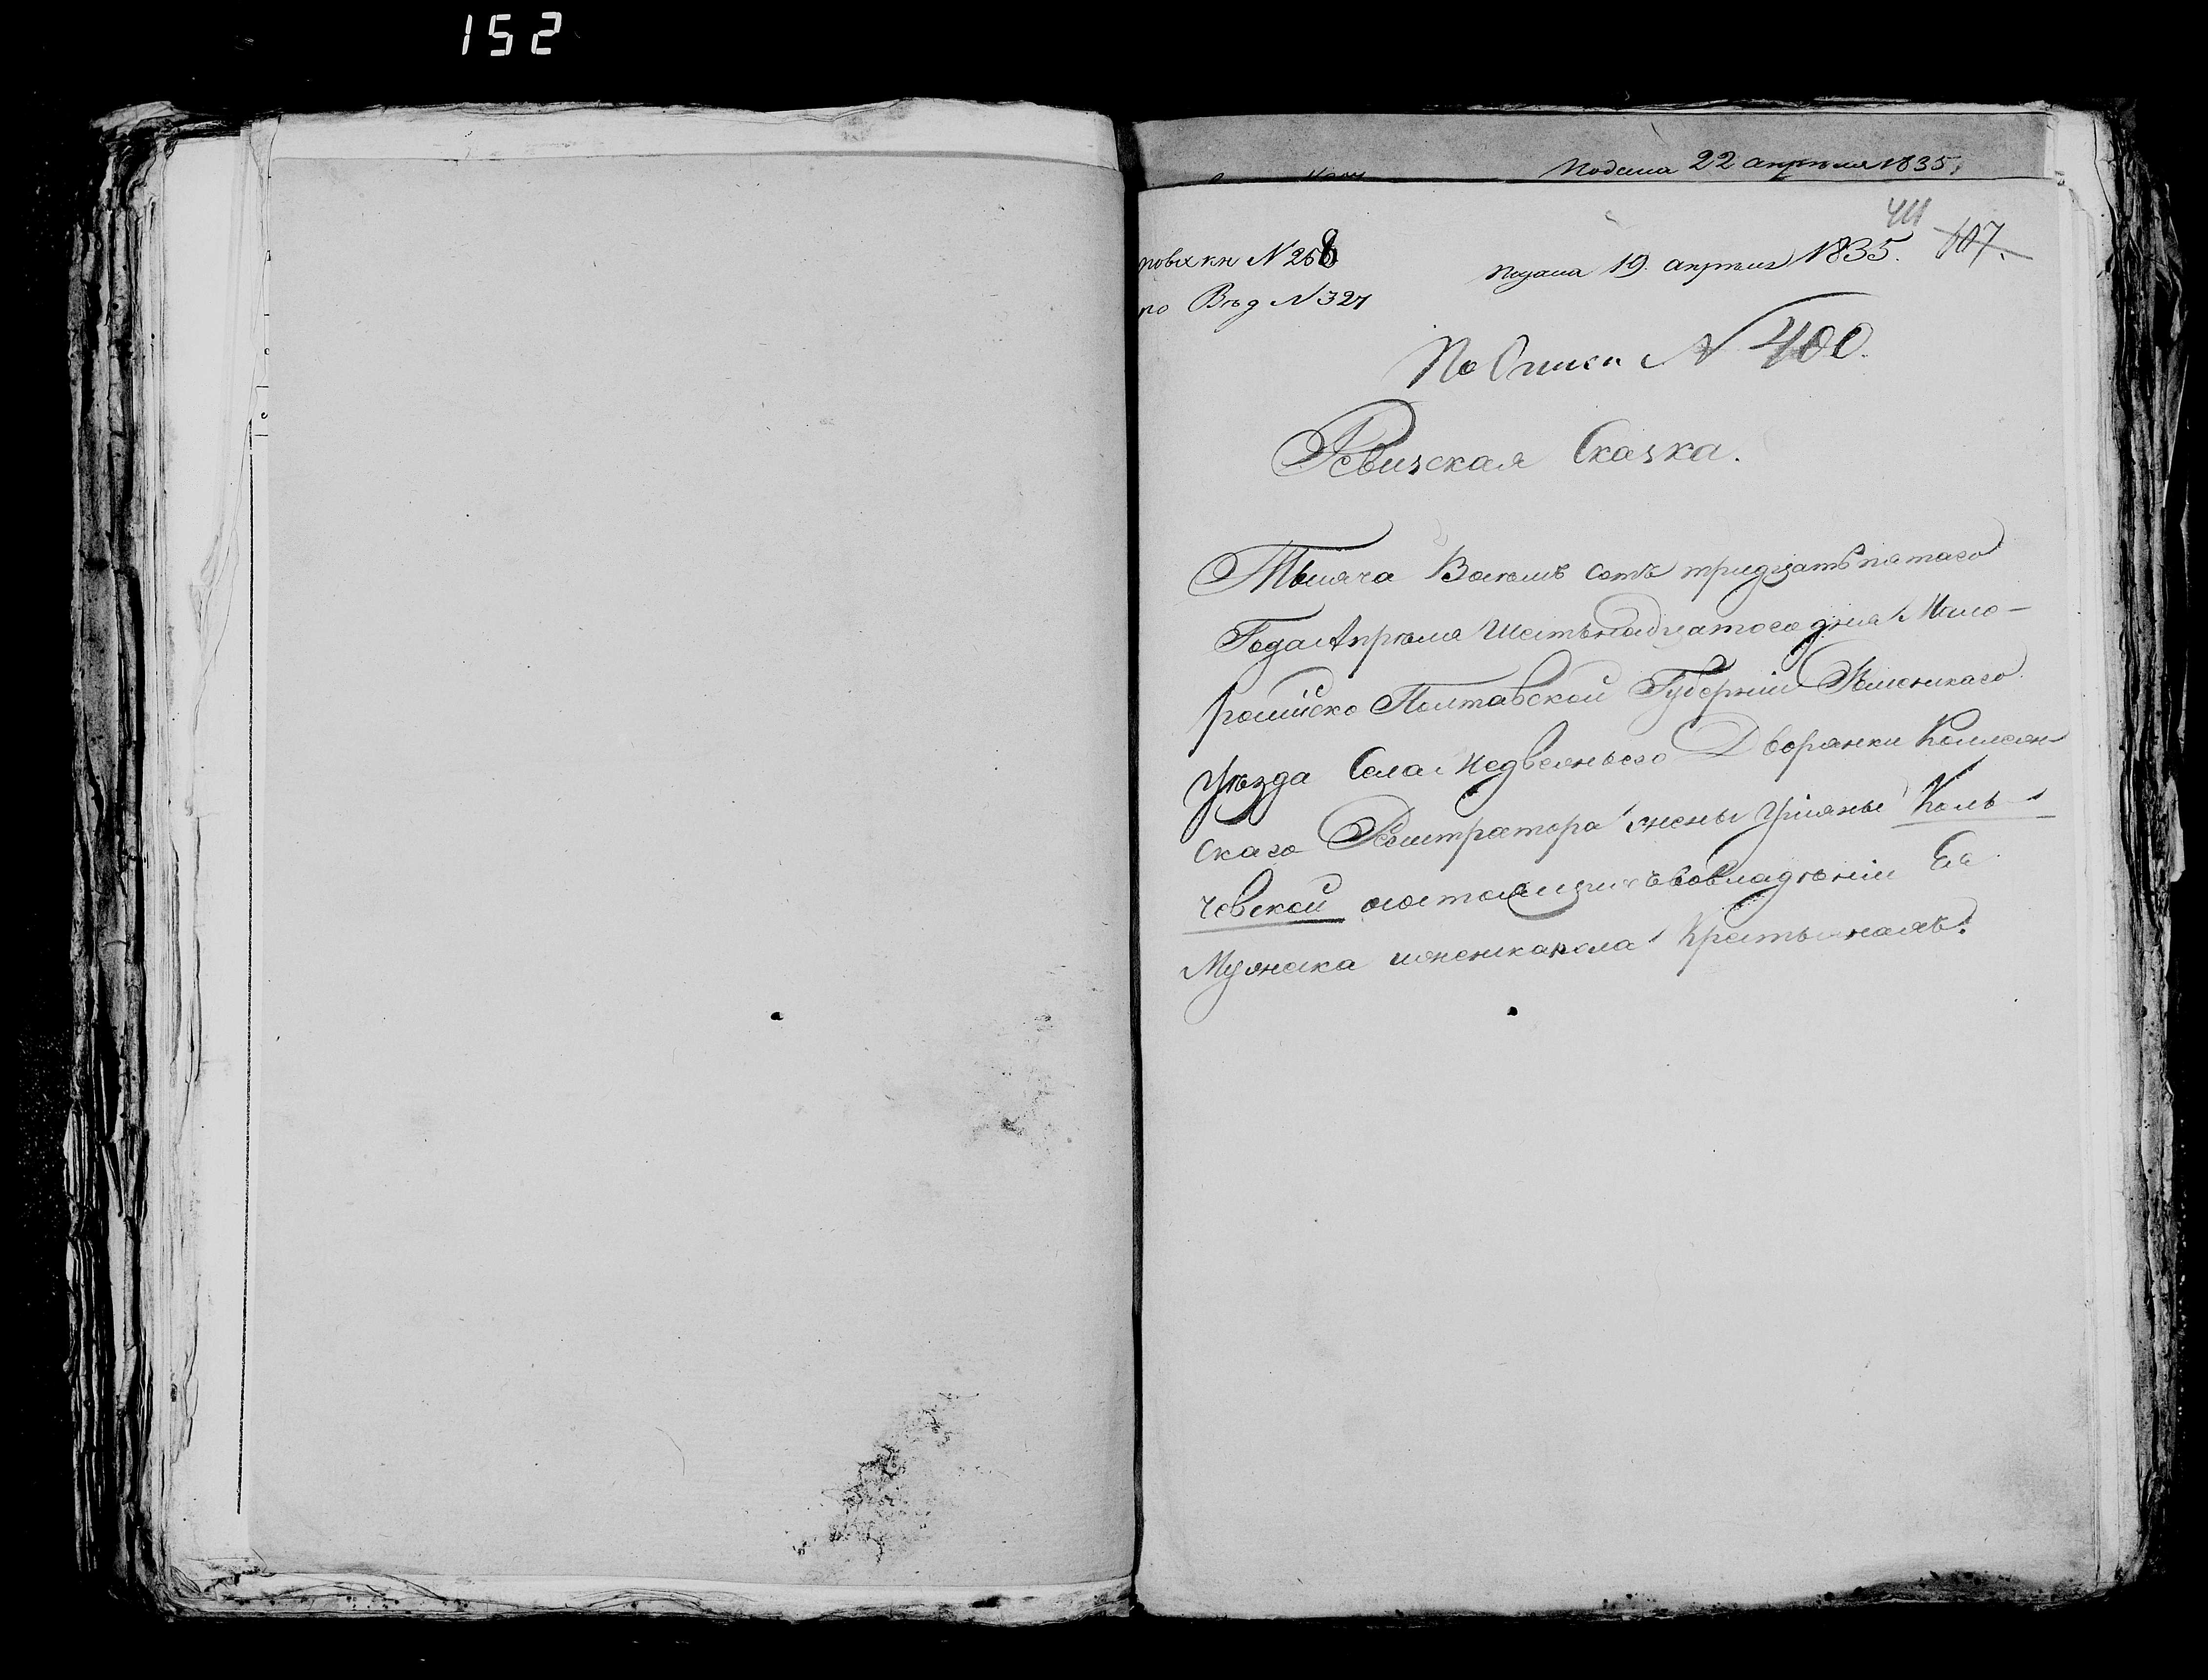 152
Подана 22 апреля 1835,
411 107.
повх кн N 268 подана 19. апреля 1835.
по Вѣд N 327
По Описи N 400.
Ревизская Сказка.
Тысяча Восемь сотъ тридцать пятаго
Года Апреля Шестьнадцатого дня Мало-
россійско Полтавской Губерніи
Уѣзда Села Медвежьего Дворянки Коллеж-
скаго Регистратора жены Ульяны Коль-
чевской состоящихъ вовладѣніи Ея
Мужеска иженскапола Крестьянахъ.